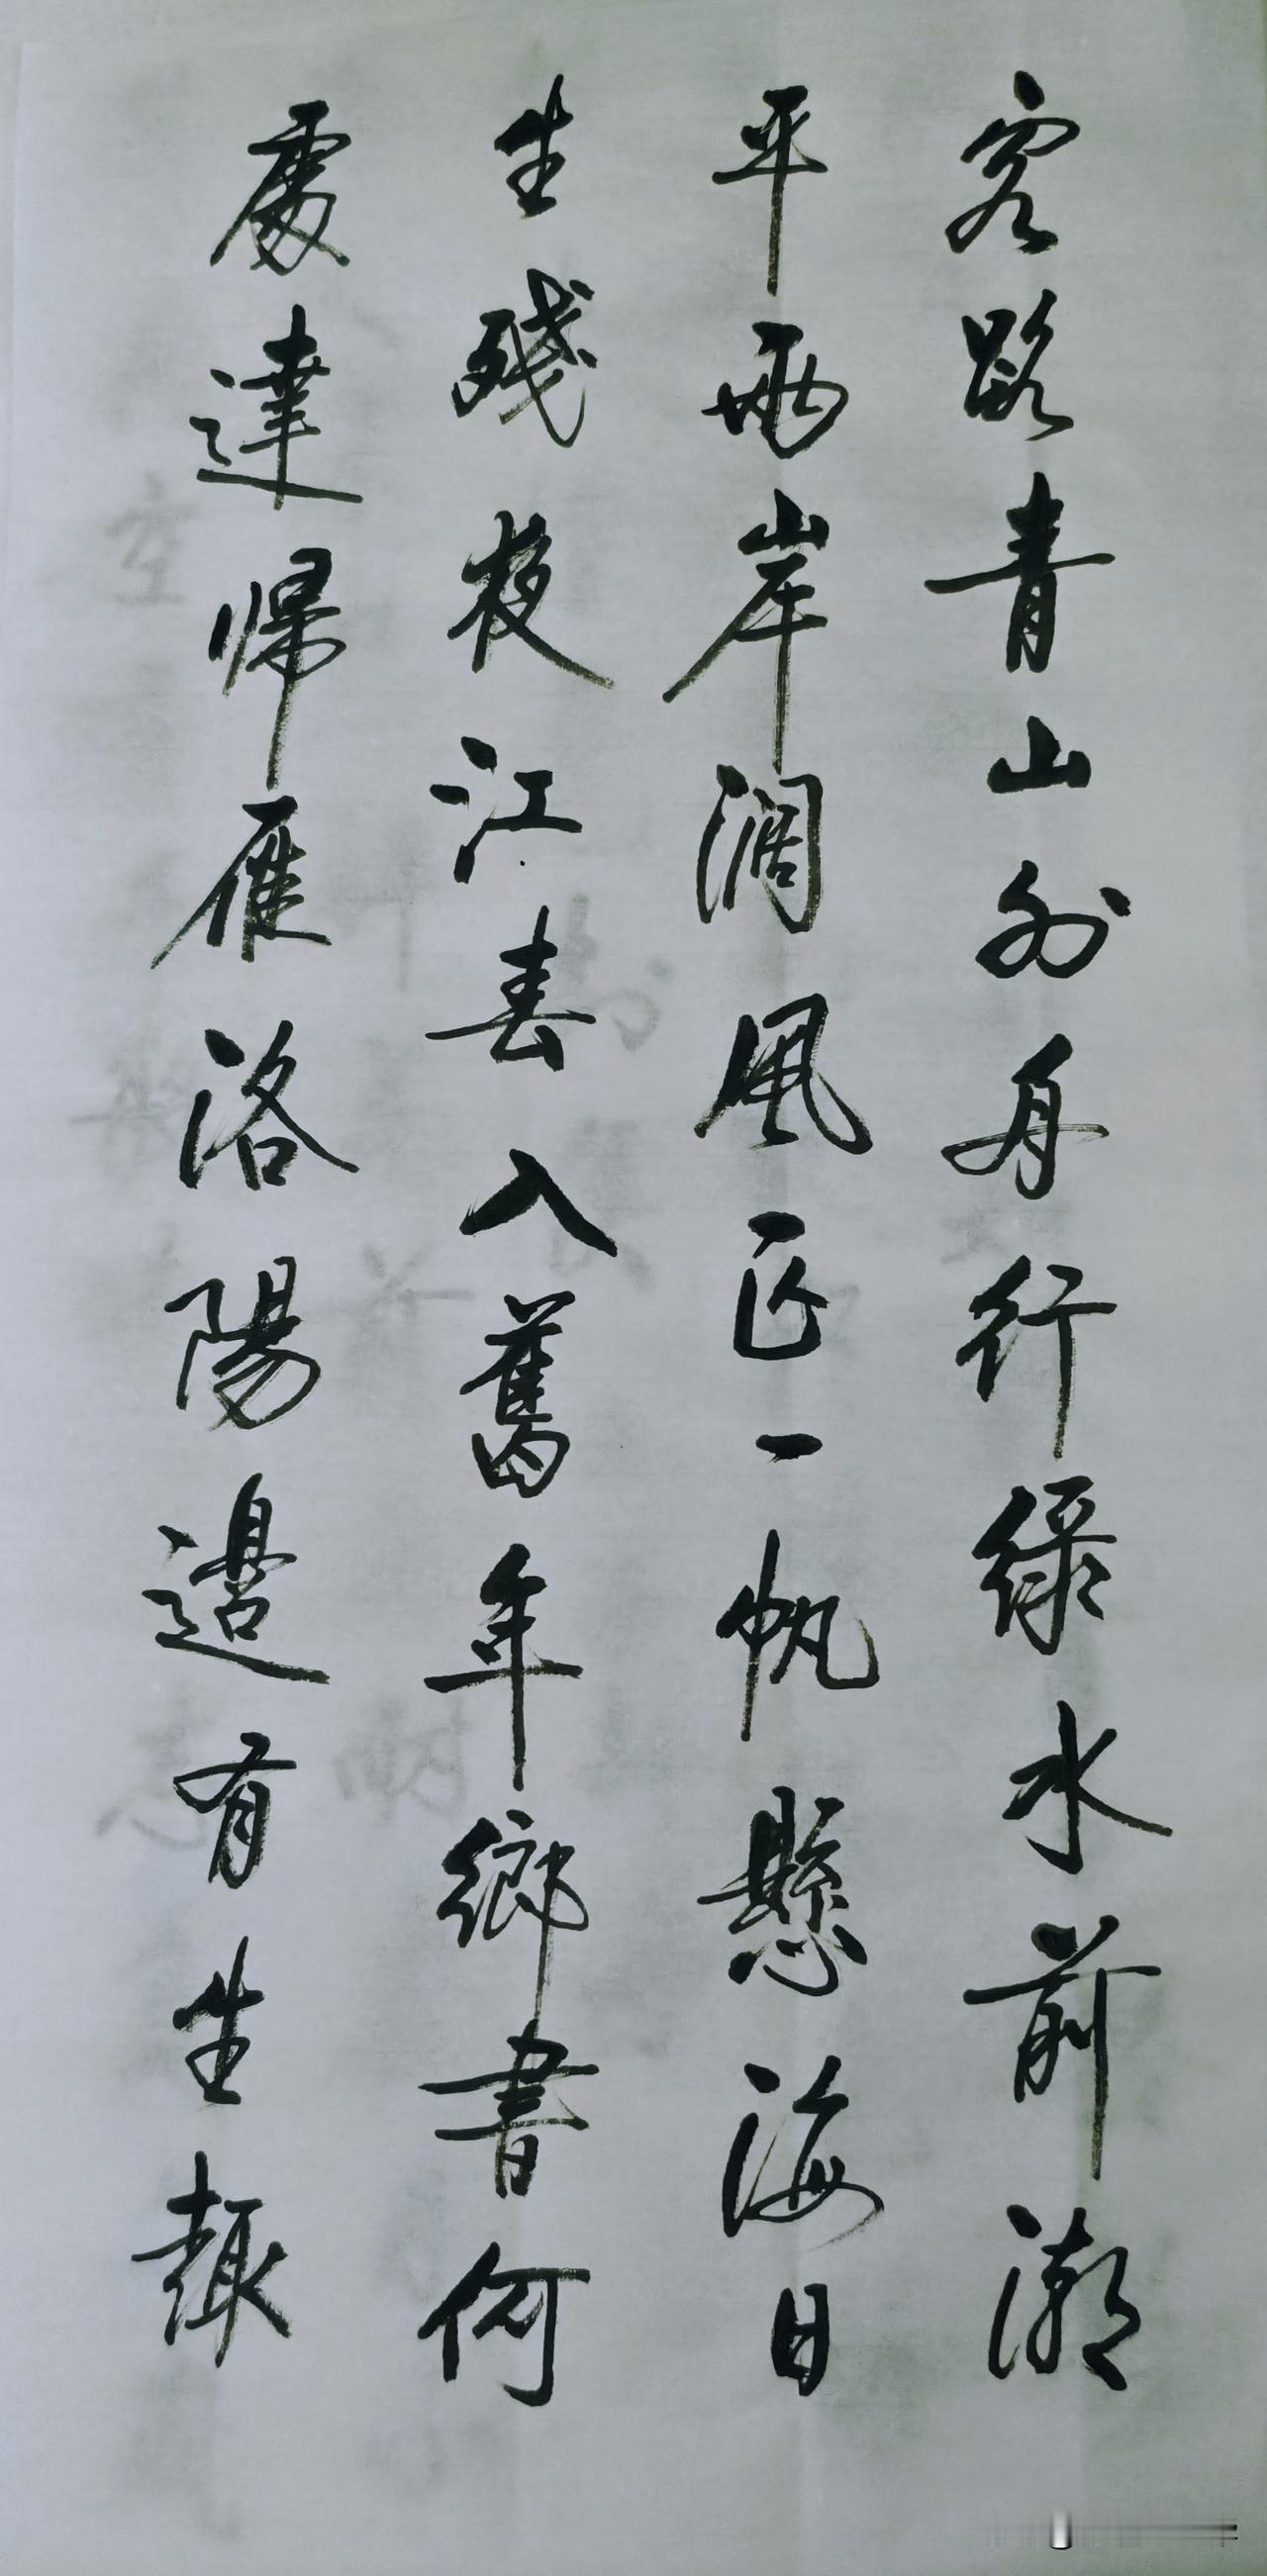 客路青山外舟行绿水前潮
平两岸阔风正一帆懸海日
生残夜江春入舊年鄉書何
處達帰雁洛陽邉有生趣